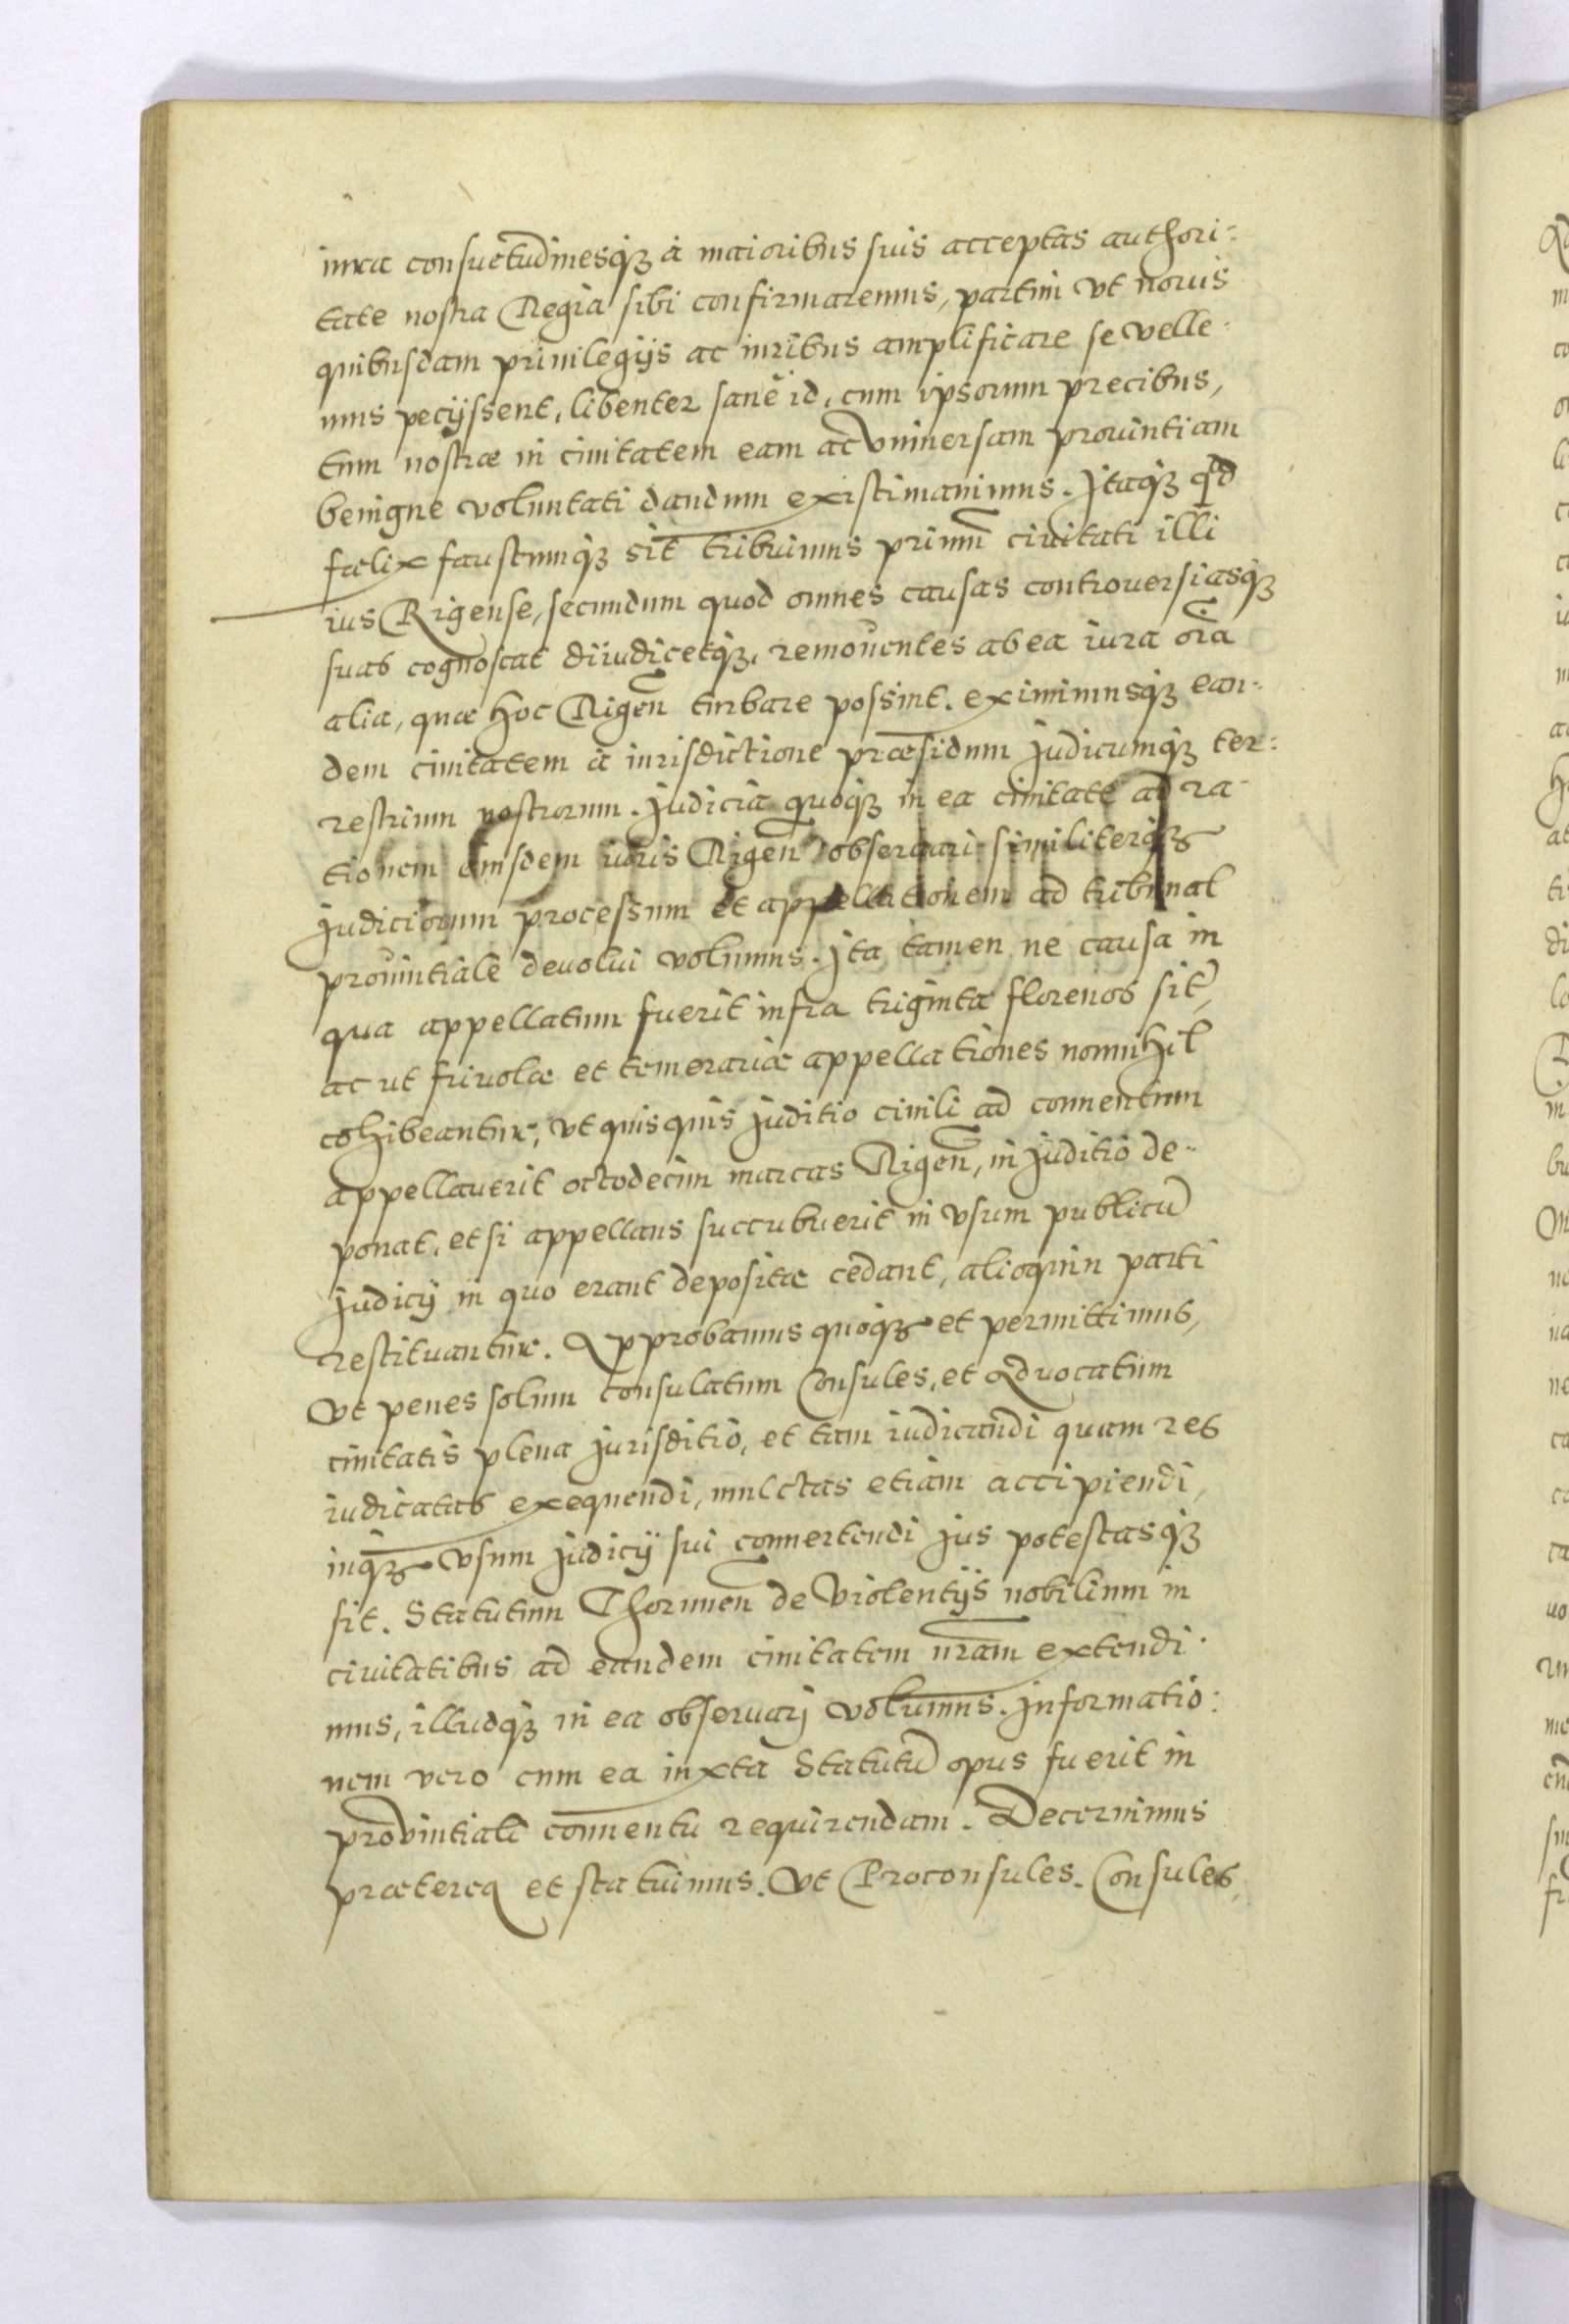 iura consuetudinesq₃ à maioribus suis acceptas authori:
tate nostra Regia sibi confirmaremus, partim vt novis
quibusdam privilegijs ac iuribus amplificare se velle:
mus pecijssent, libenter sanè id, cum ipsorum precibus,
tum nostræ in civitatem eam ac vniversam provintiam
benigne voluntati dandum existimavimus. Itaq₃ qd
fælix faustumq₃ sit tribuimus primũ civitati illi
ius Rigense, secundum quod omnes causas controversiasq₃
suas cognoscat dijudicetq₃, removentes ab ea iura oĩa
alia, quæ hoc Rigeñ turbare possint. eximimusq₃ ean-
dem civitatem à iurisdictione præsidum Judicumq₃ ter:
restrium nostrorum. Judicia quoq₃ in ea civitate ad ra-
tionem eiusdem iuris Rigeñ observari similiterq₃
Judiciorum processum et appellationem ad tribunal
provintiale devolvi volumus. Ita tamen ne causa in
qua appellatum fuerit infra triginta florenos sit,
ac ut frivolæ et temerariæ appellationes nonnihil
cohibeantur, vt quisquis Juditio civili ad conventum
appellaverit octodecim marcas Rigeñ, in Juditio de-
ponat, et si appellans succubuerit in vsum publicũ
Judicij in quo erant depositæ cedant, alioquin parti
restituantur. Approbamus quoq₃ et permittimus,
Vt penes solum consulatum Consules, et Advocatum
civitatis plena Jurisditio, et tam iudicandi quam res
iudicatas exequendi, mulctas etiam accipiendi,
inq₃ vsum Judicij sui convertendi Jus potestasq₃
sit. Statutum Thoruneñ de Violentijs nobilium in
civitatibus ad eandem civitatem nr̃am extendi-
mus, illudq₃ in ea observarj volumus. Informatio:
nem vero cum ea iuxta Statutũ opus fuerit in
provintiali conventu requirendam. Decernimus
præterea et statuimus. Vt Proconsules. Consules,